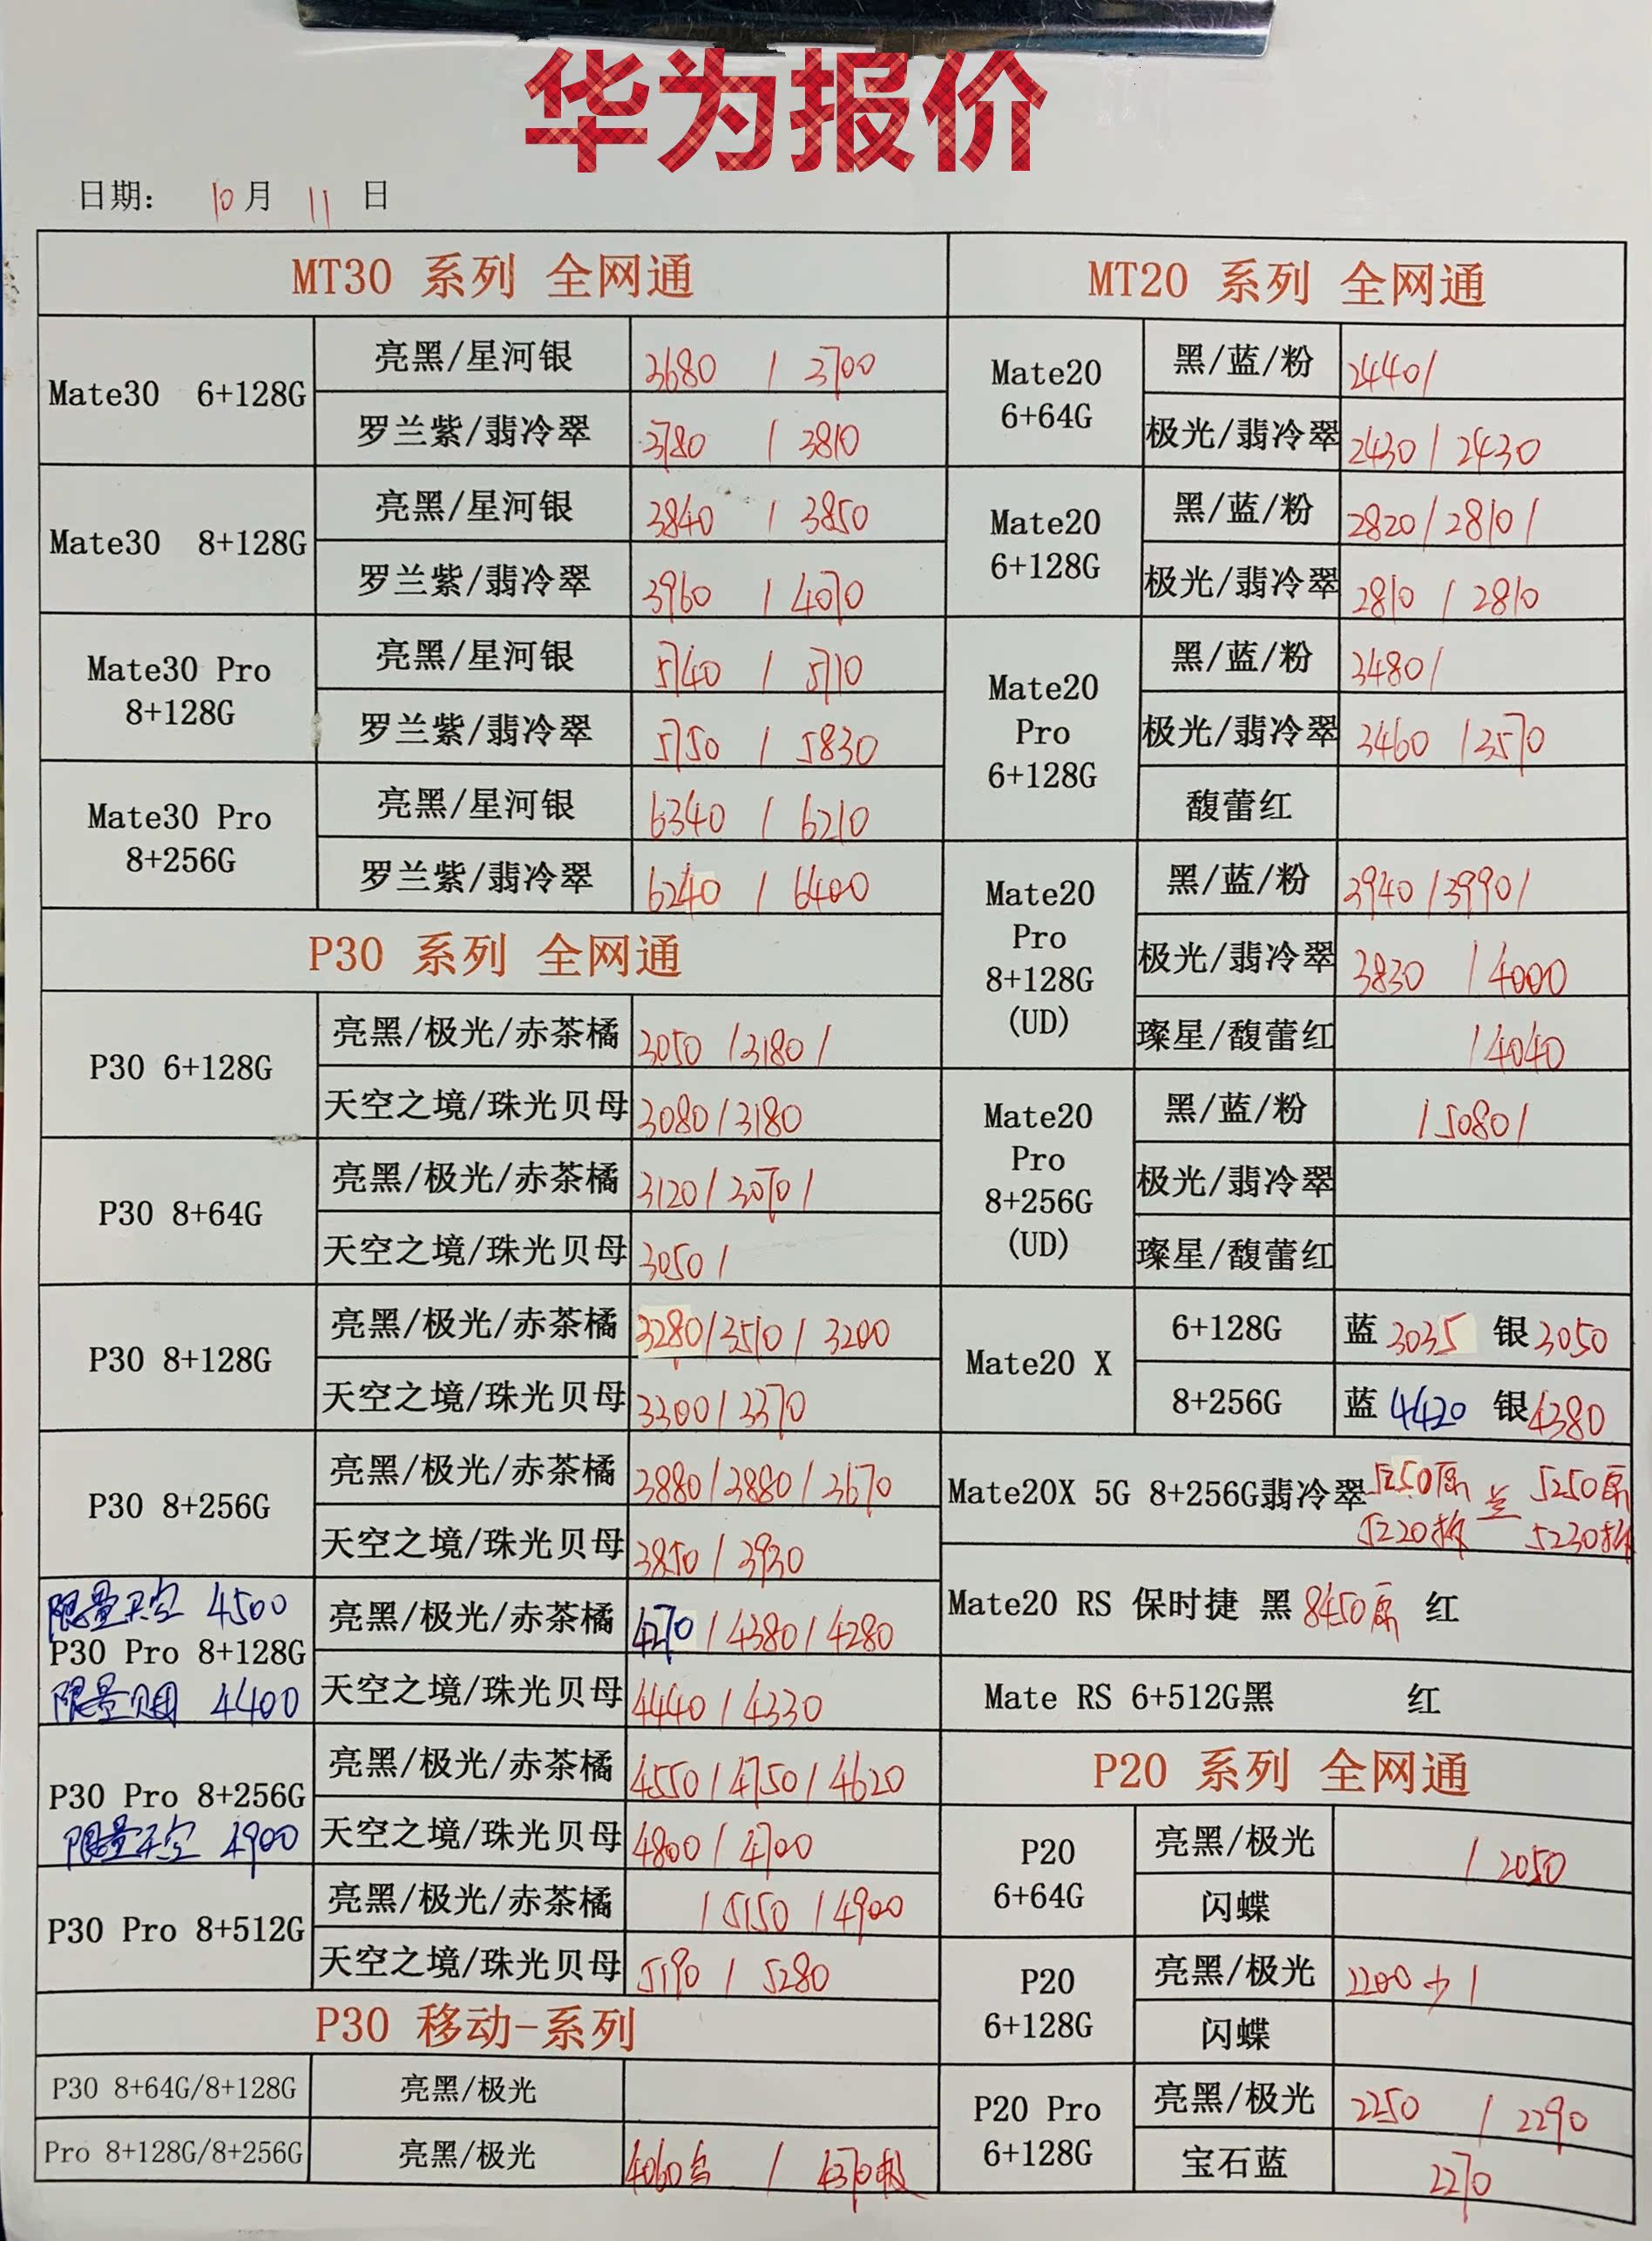 华为报价
日期： 10月 11 日
MT30 系列 全网通
Mate30 6+128G
亮黑/星河银 3680 / 3700
罗兰紫/翡冷翠 3780 / 3810
Mate30 8+128G
亮黑/星河银 3840 / 3850
罗兰紫/翡冷翠 3960 / 4070
Mate30 Pro
8+128G
亮黑/星河银 5740 / 5710
罗兰紫/翡冷翠 5750 / 5830
Mate30 Pro
8+256G
亮黑/星河银 6340 / 6210
罗兰紫/翡冷翠 6240 / 6400
P30 系列 全网通
P30 6+128G
亮黑/极光/赤茶橘 3050 /3180/
天空之境/珠光贝母 3080/3180
P30 8+64G
亮黑/极光/赤茶橘 3120/3070/
天空之境/珠光贝母 3050/
P30 8+128G
亮黑/极光/赤茶橘 3280/3510/3200
天空之境/珠光贝母 3300/3370
P30 8+256G
亮黑/极光/赤茶橘 3880/3880/3670
天空之境/珠光贝母 3850/3930
限量天空 4500
P30 Pro 8+128G
限量贝母 4400
亮黑/极光/赤茶橘 4270/4380/4280
天空之境/珠光贝母 4440/4330
P30 Pro 8+256G
限量天空 4900
亮黑/极光/赤茶橘 4550/4750/4620
天空之境/珠光贝母 4800/4700
P30 Pro 8+512G
亮黑/极光/赤茶橘 /5150/4900
天空之境/珠光贝母 5190 / 5280
P30 移动-系列
P30 8+64G/8+128G 亮黑/极光
Pro 8+128G/8+256G 亮黑/极光 4060 / 4370极
MT20 系列 全网通
Mate20
6+64G
黑/蓝/粉 2440/
极光/翡冷翠 2430/2430
Mate20
6+128G
黑/蓝/粉 2820/2810/
极光/翡冷翠 2810 / 2810
Mate20
Pro
6+128G
黑/蓝/粉 3480/
极光/翡冷翠 3460 /3570
馥蕾红
Mate20
Pro
8+128G
(UD)
黑/蓝/粉 3940/3990/
极光/翡冷翠 3830 /4000
璨星/馥蕾红 /4040
Mate20
Pro
8+256G
(UD)
黑/蓝/粉 /5080/
极光/翡冷翠
璨星/馥蕾红
Mate20 X
6+128G 蓝 3035 银 3050
8+256G 蓝 4420 银 4380
Mate20X 5G 8+256G翡冷翠 5250原 兰 5250原
5220拆 5230拆
Mate20 RS 保时捷 黑 8450原 红
Mate RS 6+512G黑 红
P20 系列 全网通
P20
6+64G
亮黑/极光 / 2050
闪蝶
P20
6+128G
亮黑/极光 2200 /
闪蝶
P20 Pro
6+128G
亮黑/极光 2250 / 2290
宝石蓝 2270